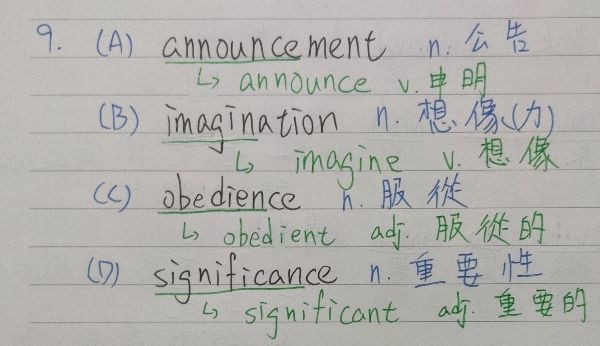 9. (A) announcement n. 公告
↳ announce v. 申明
(B) imagination n. 想像(力)
↳ imagine v. 想像
(C) obedience n. 服從
↳ obedient adj. 服從的
(D) significance n. 重要性
↳ significant adj. 重要的